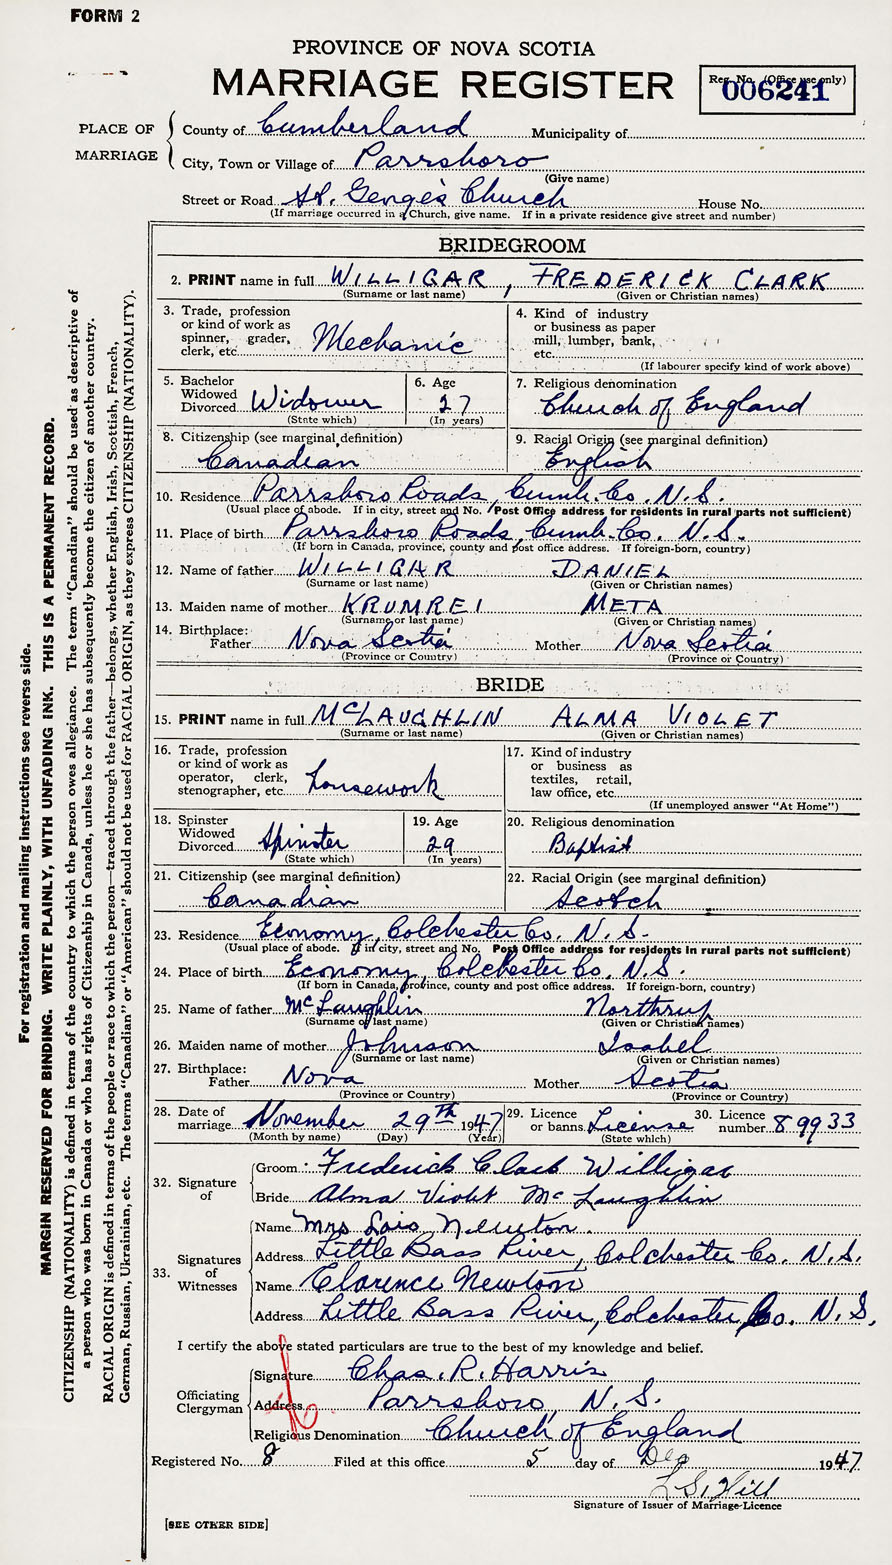 FORM 2
PROVINCE OF NOVA SCOTIA
MARRIAGE REGISTER
Reg. No. (Office use only)
006241
PLACE OF MARRIAGE
County of Cumberland Municipality of
City, Town or Village of Parrsboro
(Give name)
Street or Road St. George's Church House No.
(If marriage occurred in a Church, give name. If in a private residence give street and number)
BRIDEGROOM
2. PRINT name in full WILLIGAR, FREDERICK CLARK
(Surname or last name) (Given or Christian names)
3. Trade, profession or kind of work as spinner, grader, clerk, etc. Mechanic
4. Kind of industry or business as paper mill, lumber, bank, etc.
(If labourer specify kind of work above)
5. Bachelor Widowed Divorced Widower
(State which)
6. Age 27
(In years)
7. Religious denomination
Church of England
8. Citizenship (see marginal definition)
Canadian
9. Racial Origin (see marginal definition)
English
10. Residence Parrsboro Roads, Cumb. Co. N.S.
(Usual place of abode. If in city, street and No. Post Office address for residents in rural parts not sufficient)
11. Place of birth Parrsboro Roads, Cumb. Co. N.S.
(If born in Canada, province, county and post office address. If foreign-born, country)
12. Name of father WILLIGAR DANIEL
(Surname or last name) (Given or Christian names)
13. Maiden name of mother KRUMREI META
(Surname or last name) (Given or Christian names)
14. Birthplace: Father Nova Scotia Mother Nova Scotia
(Province or Country) (Province or Country)
BRIDE
15. PRINT name in full McLAUGHLIN ALMA VIOLET
(Surname or last name) (Given or Christian names)
16. Trade, profession or kind of work as operator, clerk, stenographer, etc. housework
17. Kind of industry or business as textiles, retail, law office, etc.
(If unemployed answer "At Home")
18. Spinster Widowed Divorced Spinster
(State which)
19. Age 29
(In years)
20. Religious denomination
Baptist
21. Citizenship (see marginal definition)
Canadian
22. Racial Origin (see marginal definition)
Scotch
23. Residence Economy, Colchester Co. N.S.
(Usual place of abode. If in city, street and No. Post Office address for residents in rural parts not sufficient)
24. Place of birth Economy, Colchester Co. N.S.
(If born in Canada, province, county and post office address. If foreign-born, country)
25. Name of father McLaughlin Northrup
(Surname or last name) (Given or Christian names)
26. Maiden name of mother Johnson Isabel
(Surname or last name) (Given or Christian names)
27. Birthplace: Father Nova Mother Scotia
(Province or Country) (Province or Country)
28. Date of marriage November 29th 1947
(Month by name) (Day) (Year)
29. Licence or banns License
(State which)
30. Licence number 89933
32. Signature of
Groom: Frederick Clark Willigar
Bride Alma Violet McLaughlin
33. Signatures of Witnesses
Name Mrs Lois Newton.
Address Little Bass River, Colchester Co. N.S.
Name Clarence Newton
Address Little Bass River, Colchester, Co. N.S.
I certify the above stated particulars are true to the best of my knowledge and belief.
Officiating Clergyman
Signature Chas. R. Harris
Address Parrsboro, N.S.
Religious Denomination Church of England
Registered No. 8 Filed at this office 5 day of Dec 1947
L.S. Hill
Signature of Issuer of Marriage Licence
[SEE OTHER SIDE]
For registration and mailing instructions see reverse side.
MARGIN RESERVED FOR BINDING. WRITE PLAINLY, WITH UNFADING INK. THIS IS A PERMANENT RECORD.
CITIZENSHIP (NATIONALITY) is defined in terms of the country to which the person owes allegiance. The term "Canadian" should be used as descriptive of
a person who was born in Canada or who has rights of Citizenship in Canada, unless he or she has subsequently become the citizen of another country.
RACIAL ORIGIN is defined in terms of the people or race to which the person—traced through the father—belongs, whether English, Irish, Scottish, French,
German, Russian, Ukrainian, etc. The terms "Canadian" or "American" should not be used for RACIAL ORIGIN, as they express CITIZENSHIP (NATIONALITY).